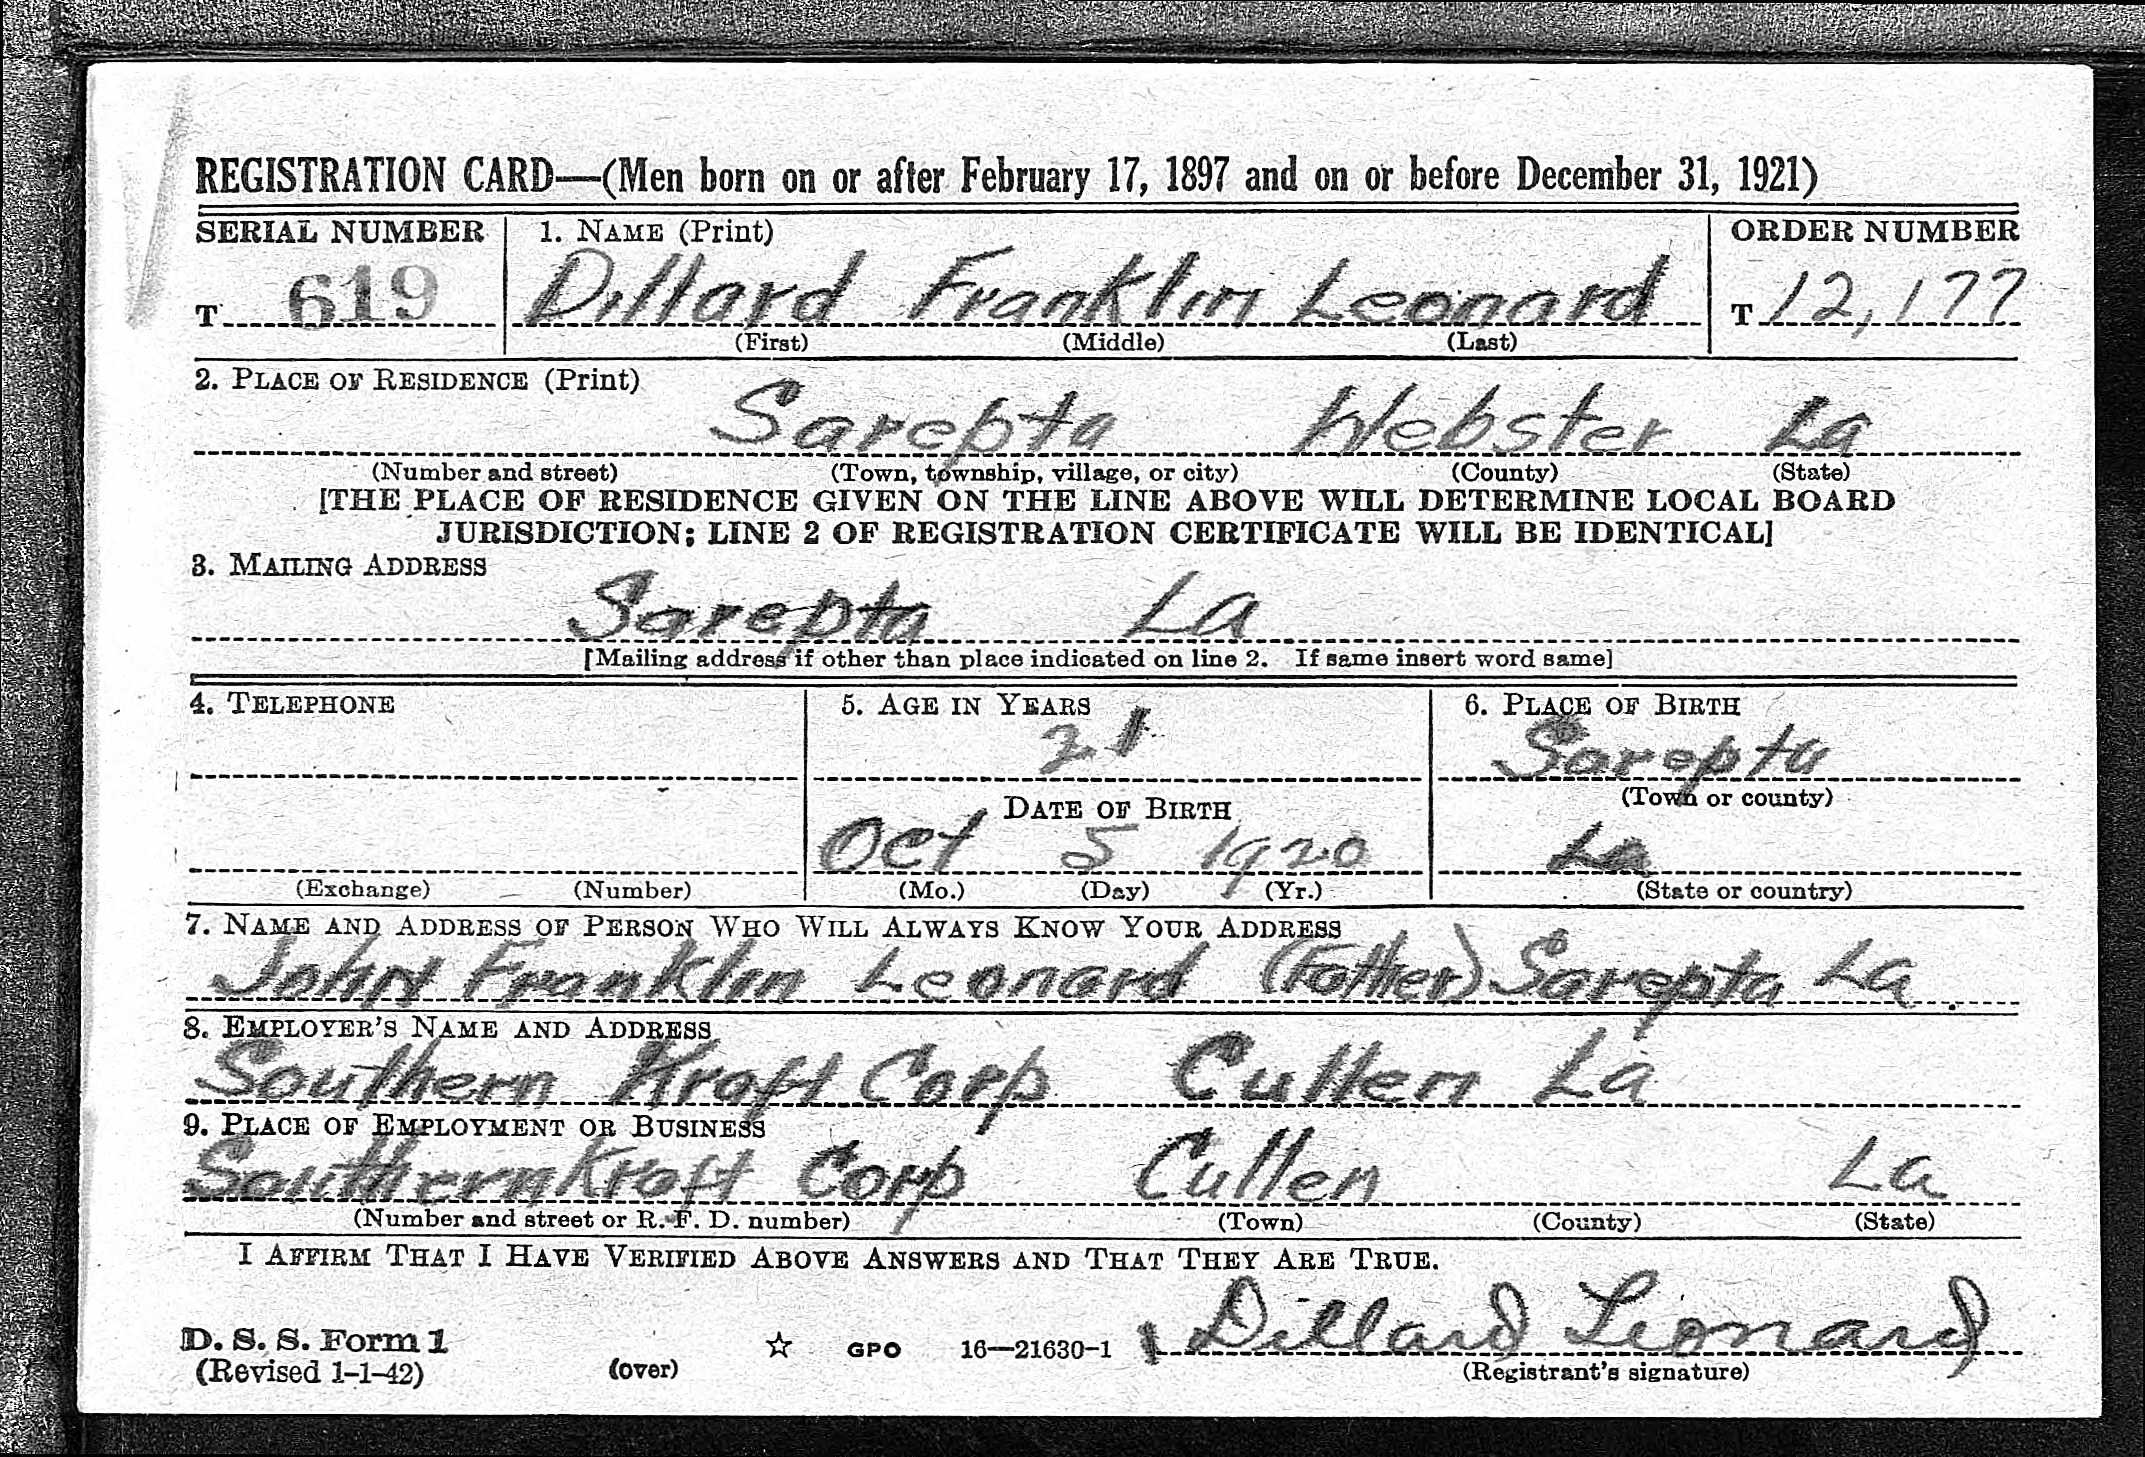 REGISTRATION CARD—(Men born on or after February 17, 1897 and on or before December 31, 1921)
SERIAL NUMBER 1. NAME (Print) ORDER NUMBER
T 619 Dillard Franklin Leonard T 12,177
(First) (Middle) (Last)
2. PLACE OF RESIDENCE (Print)
Sarepta Webster La
(Number and street) (Town, township, village, or city) (County) (State)
[THE PLACE OF RESIDENCE GIVEN ON THE LINE ABOVE WILL DETERMINE LOCAL BOARD
JURISDICTION; LINE 2 OF REGISTRATION CERTIFICATE WILL BE IDENTICAL]
3. MAILING ADDRESS
Sarepta La
[Mailing address if other than place indicated on line 2. If same insert word same]
4. TELEPHONE 5. AGE IN YEARS 6. PLACE OF BIRTH
21 Sarepta
(Town or county)
DATE OF BIRTH
Oct 5 1920 La
(Exchange) (Number) (Mo.) (Day) (Yr.) (State or country)
7. NAME AND ADDRESS OF PERSON WHO WILL ALWAYS KNOW YOUR ADDRESS
John Franklin Leonard (Father) Sarepta La.
8. EMPLOYER'S NAME AND ADDRESS
Southern Kraft Corp Cullen La
9. PLACE OF EMPLOYMENT OR BUSINESS
Southern Kraft Corp Cullen La
(Number and street or R. F. D. number) (Town) (County) (State)
I AFFIRM THAT I HAVE VERIFIED ABOVE ANSWERS AND THAT THEY ARE TRUE.
Dillard Leonard
D. S. S. Form 1
(Revised 1-1-42) (over) ☆ GPO 16—21630-1 (Registrant's signature)